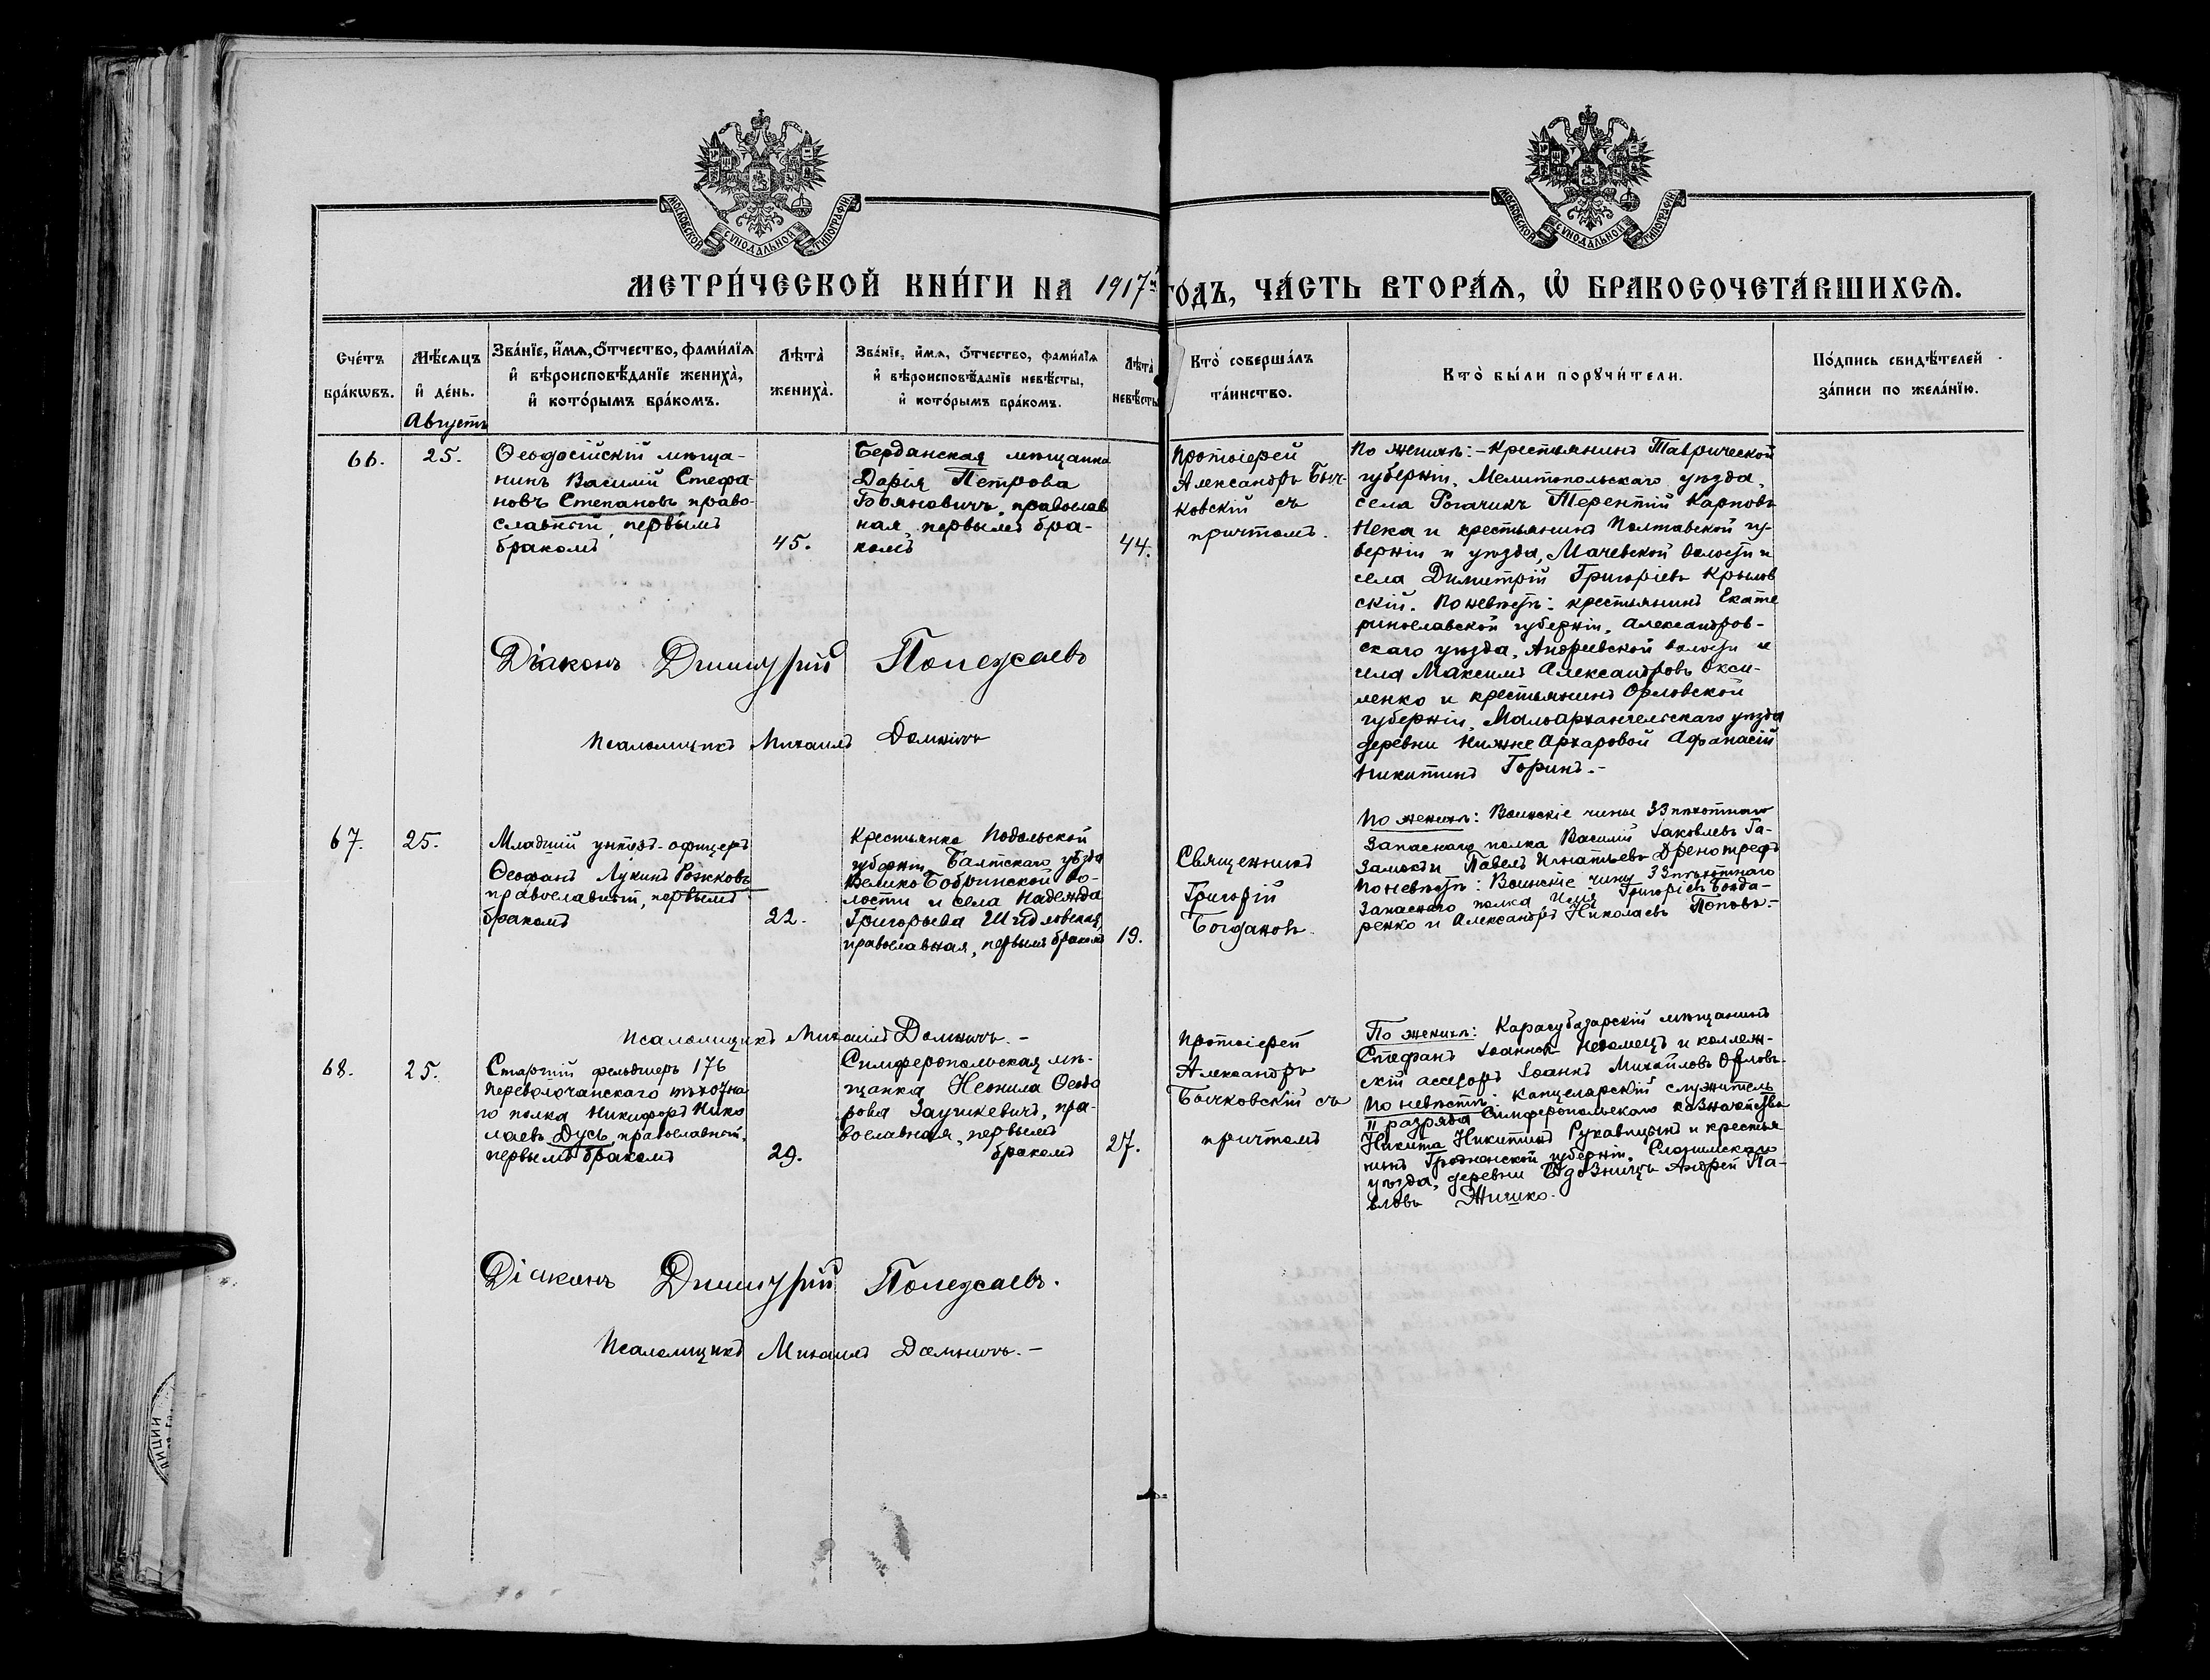 МОСКОВСКОЙ СѴНОДАЛЬНОЙ ТИПОГРАФІИ
МОСКОВСКОЙ СѴНОДАЛЬНОЙ ТИПОГРАФІИ
МЕТРИ́ЧЕСКОЙ КНИ́ГИ НА 1917й ГОДЪ, ЧА́СТЬ ВТОРА́Ѧ, Ѡ҆ БРАКОСОЧЕТА́ВШИХСѦ.
Сче́тъ
бра́кѡвъ.
Мѣ́сѧцъ
и҆ де́нь.
Августъ
Зва́нїе, и҆́мѧ, ѻ҆́тчество, фами́лїѧ
и҆ вѣроисповѣ́данїе жениха̀,
и҆ кото́рымъ бра́комъ.
Лѣта̀
жениха̀.
Зва́нїе, и҆́мѧ, ѻ҆́тчество, фами́лїѧ
и҆ вѣроисповѣ́данїе невѣ́сты,
и҆ кото́рымъ бра́комъ.
Лѣта̀
невѣ́сты
Кто̀ соверша́лъ
та́инство.
Кто̀ бы́ли порꙋчи́тели.
По́дпись свидѣ́телей
за́писи по жела́нїю.
66.
25.
Ѳеодосійскій мѣща-
нинъ Василій Стефа-
новъ Степановъ право
славный, первымъ
бракомъ
45.
Бердянская мѣщанка
Дарія Петрова
Боянович, православ
ная, первымъ бра-
комъ
44.
Протоіерей
Александръ Быч-
ковскій съ
причтомъ.
По женихѣ: - крестьянинъ Таврической
губерніи, Мелитопольскаго уѣзда,
села Рогачикъ Терентій Карповъ
Нека и крестьянинъ Полтавской гу-
берніи и уѣзда, Мачевской волости и
села Димитрій Григоріевъ Крымов
скій. По невѣстѣ: крестьянинъ Екате
ринославской губерніи, Александров-
скаго уѣзда, Андреевской волости и
села Максимъ Александровъ Окси-
ленко и крестьянинъ Орловской
губерніи, Малоархангельскаго уѣзда
деревни Нижне Архаровой Афанасій
Никитинъ Горинъ. -
Діаконъ Димитрій Полежаевъ
Псаломщикъ Михаилъ Домничъ
67.
25.
Младшій унтеръ-офицеръ
Ѳеофанъ Лукинъ Рожковъ
православный, первымъ
бракомъ
22.
Крестьянка Подольской
губерніи, Балтскаго уѣзда
Велико Бобринской во-
лости и села Надежда
Григорьева Шидловская,
православная, первымъ бракомъ
19.
Священникъ
Григорій
Богдановъ.
По женихѣ: Воинскіе чины 33 пѣхотнаго
Запаснаго полка Василій Іаковлевъ Га-
По невѣстѣ: Воинскіе чины 33 пѣхотнаго
Запаснаго полка Илія Григоріевъ Бонда-
ренко и Александръ Николаевъ Поповъ -
Псаломщикъ Михаилъ Домничъ. -
68.
25.
Старшій фельдшеръ 176
Переволочанскаго пѣхотна
го полка Никифоръ Нико
лаевъ Дусь, православный,
первымъ бракомъ
29.
Симферопольская мѣ-
щанка Неонила Ѳеодо
рова Заушкевичъ, пра-
вославная, первымъ
бракомъ
27.
Протоіерей
Александръ
Бычковскій съ
причтомъ
По женихѣ: Карасубазарскій мѣщанинъ
Стефанъ Іоанновъ Недомецъ и коллеж-
скій ассесоръ Іоаннъ Михайловъ Орловъ-
По невѣстѣ: Канцелярскій служитель
II разряда Симферопольскаго казначейства
Никита Никитинъ Рукавицынъ и крестья
нинъ Гродненской губерніи, Слонимскаго
уѣзда, деревни Андрей Па-
вловъ Жишко.
Діаконъ Димитрій Полежаевъ.
Псаломщикъ Михаилъ Домничъ. -